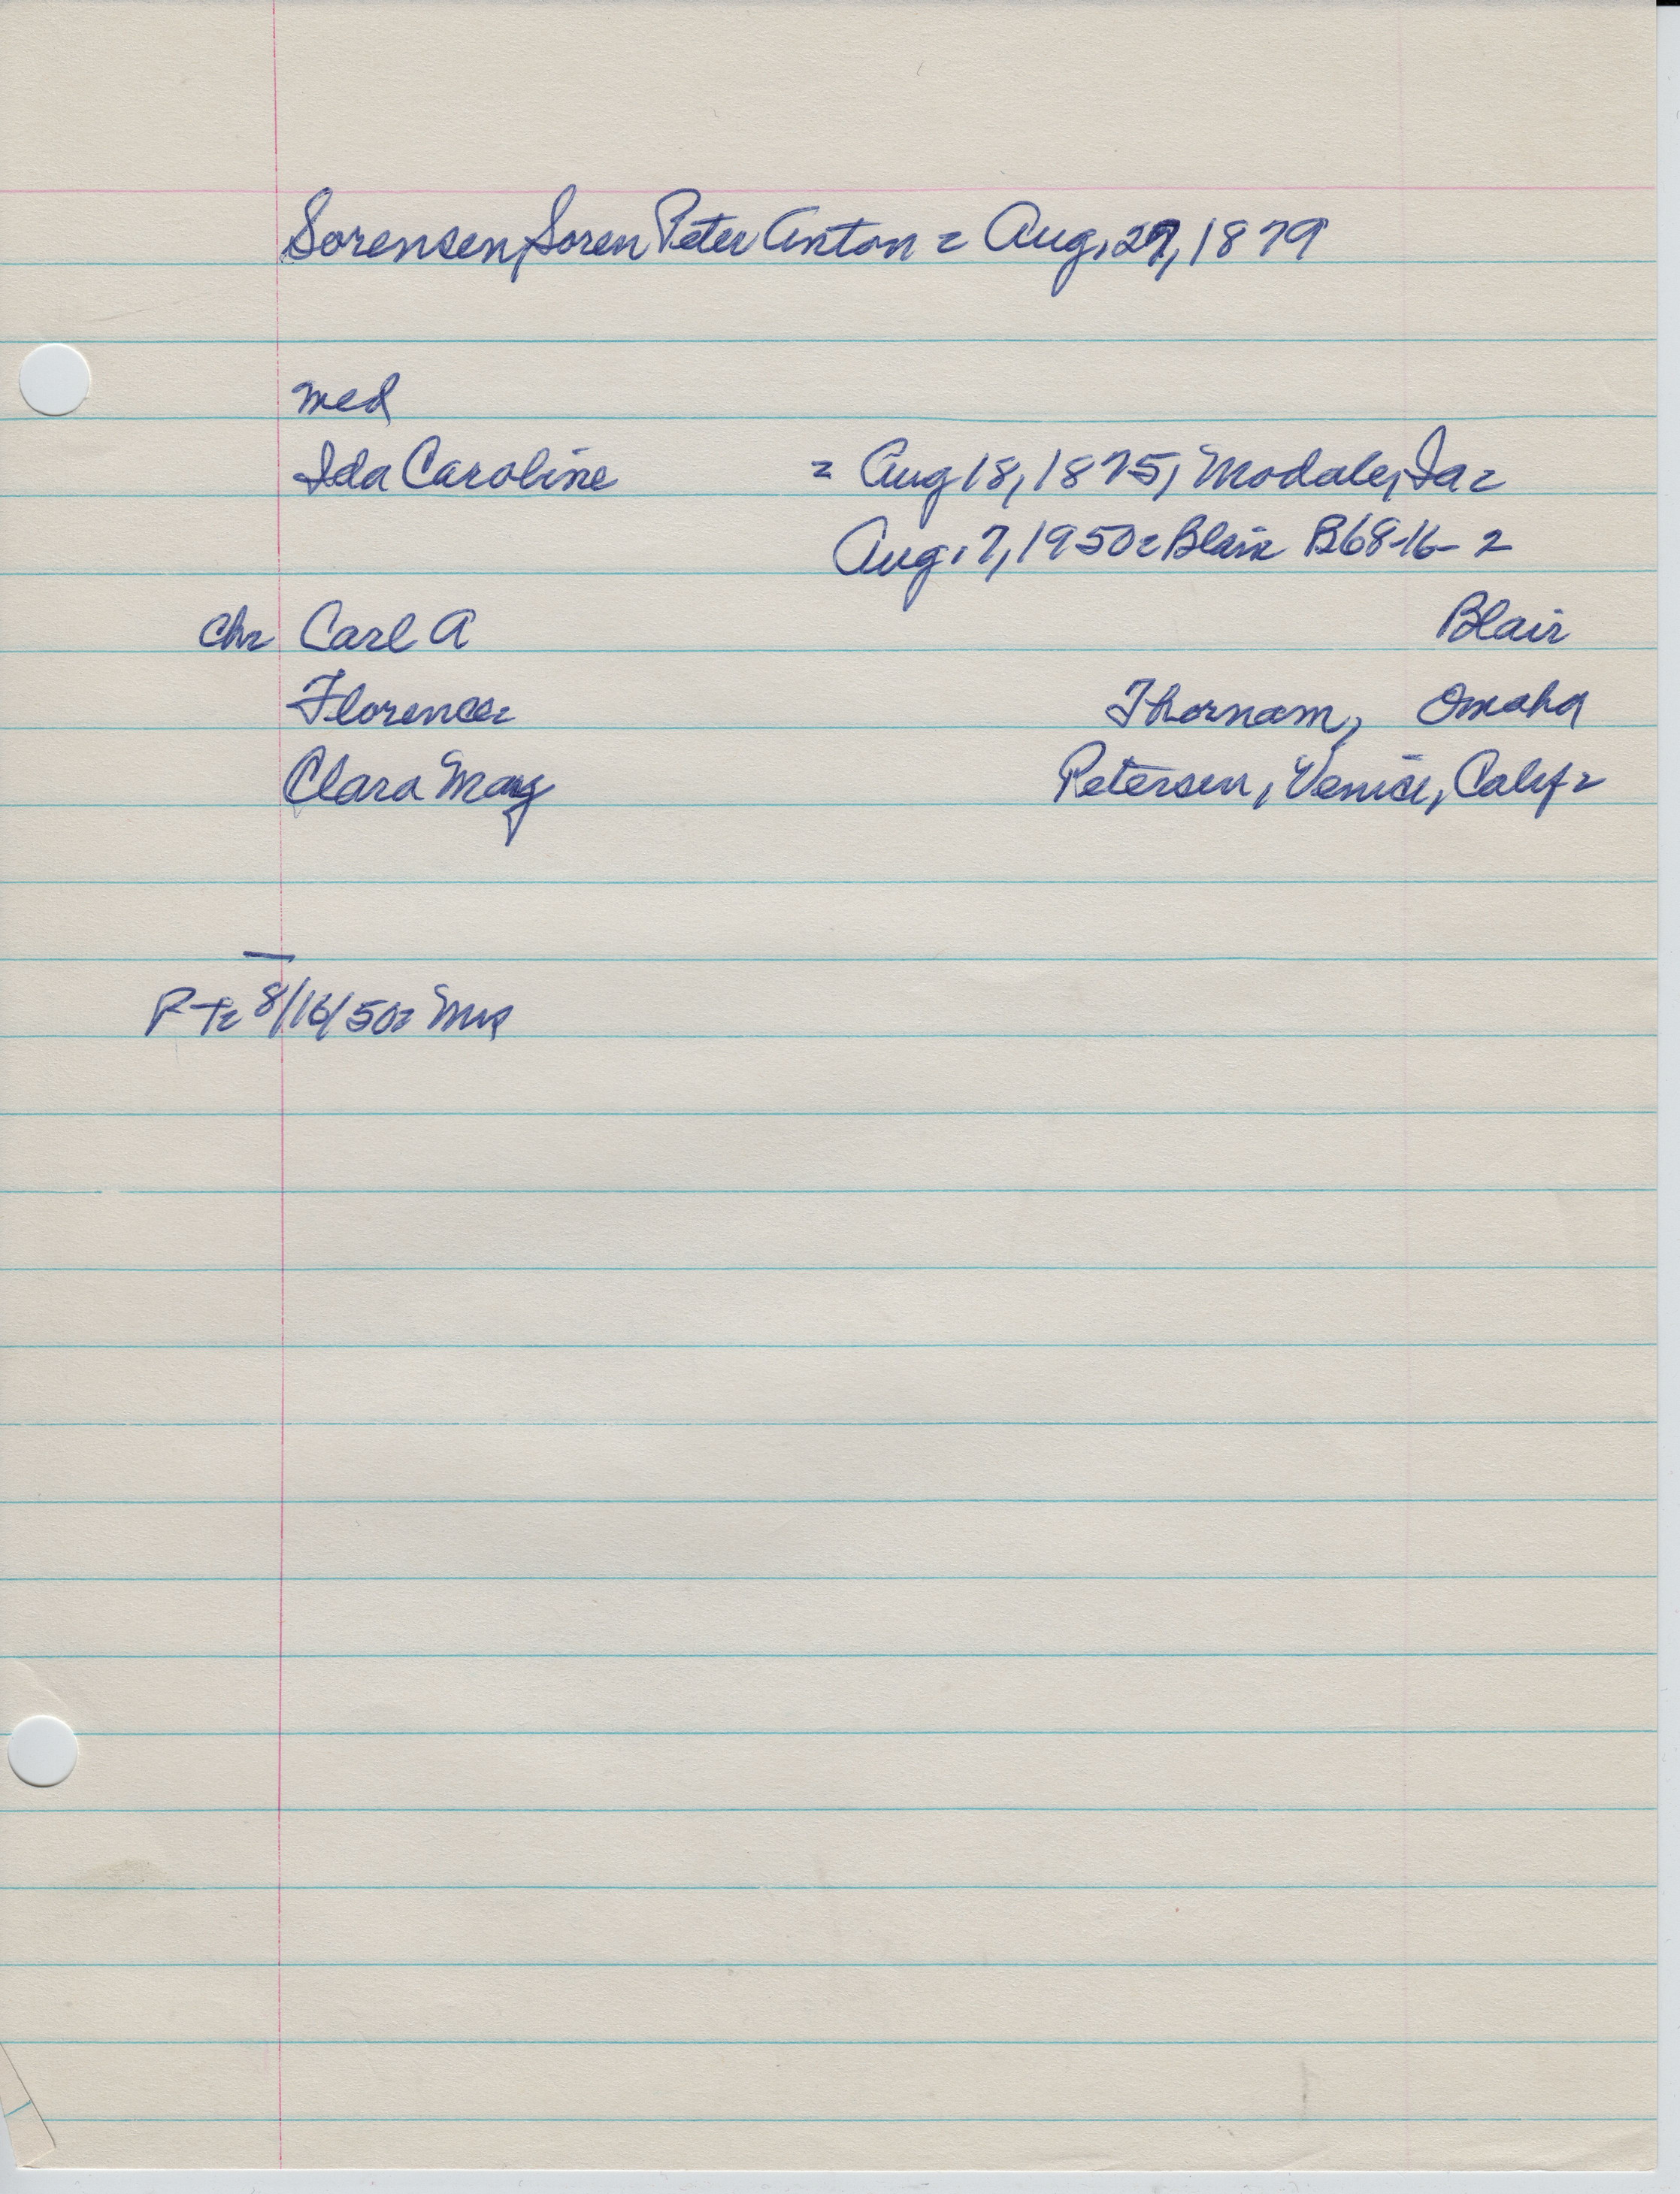 Sorensen, Soren Peter Anton = Aug. 27, 1879
med
Ida Caroline = Aug 18, 1875, Modale, Ia =
Aug. 7, 1950 = Blair B68-16-2
Chr Carl A Blair
Florence = Thornam, Omaha
Clara May Petersen, Venice, Calif =
P-T = 8/16/50 =